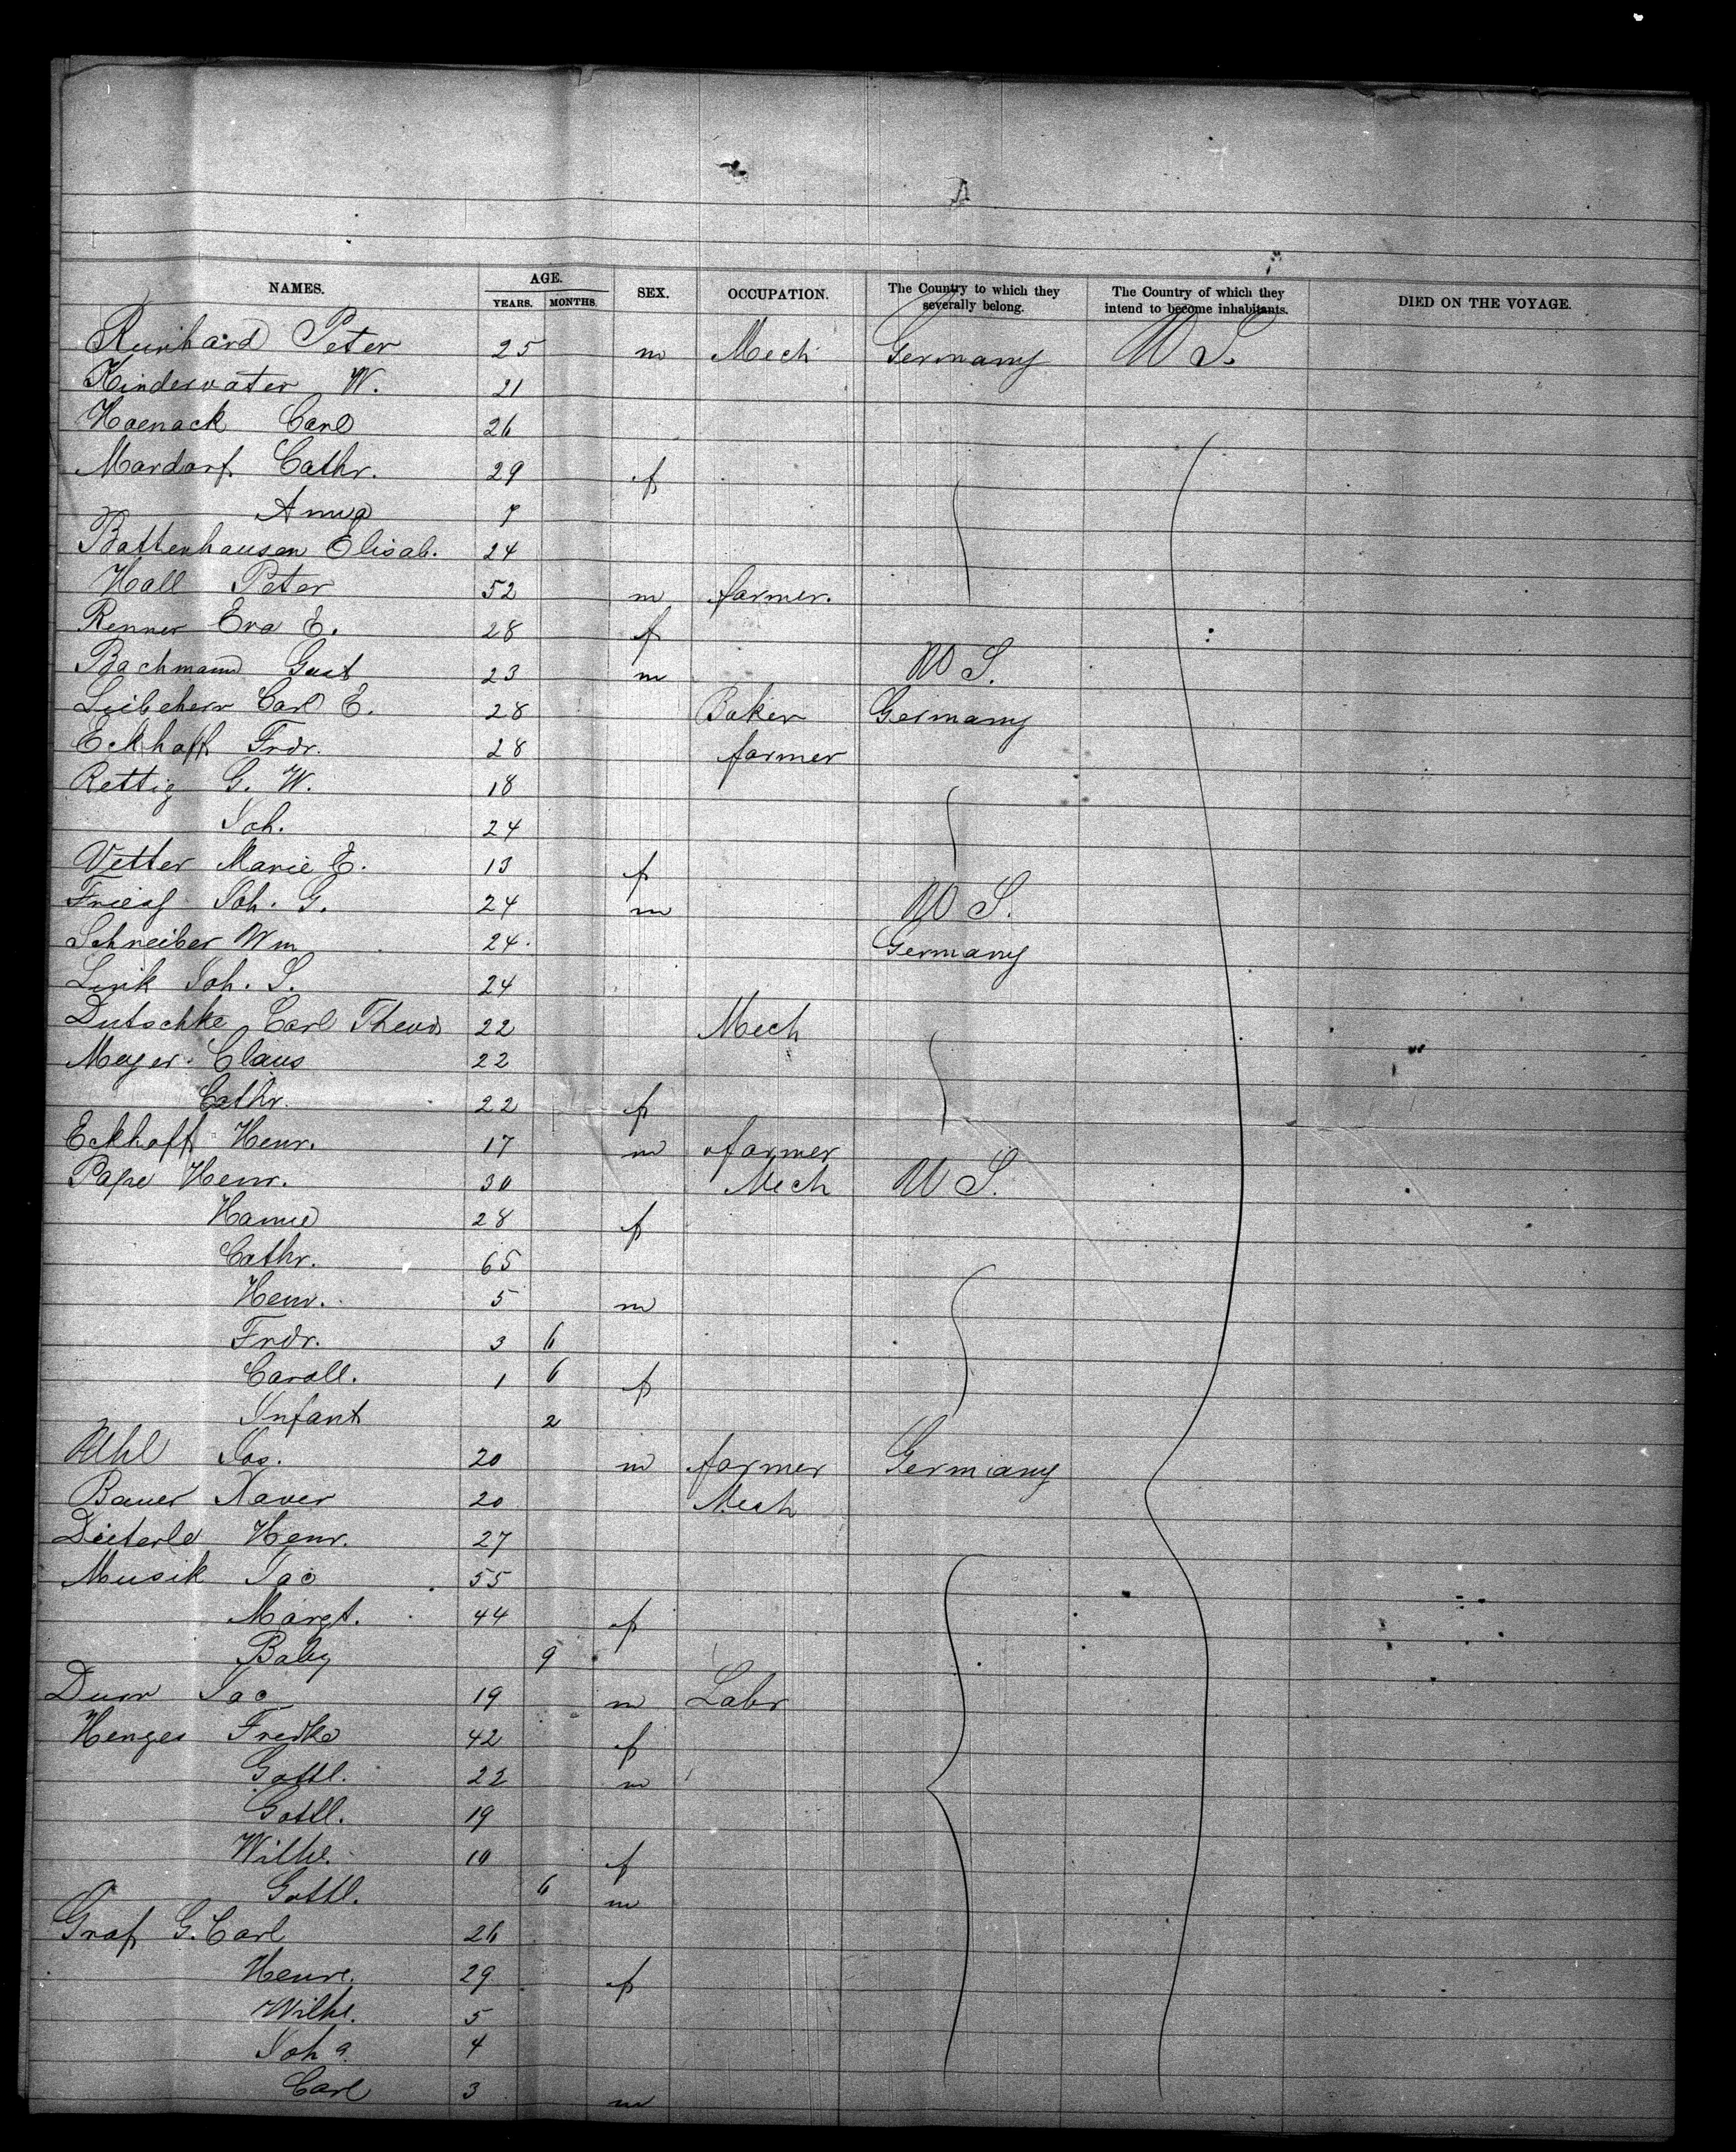 NAMES. AGE. YEARS. MONTHS. SEX. OCCUPATION. The Country to which they severally belong. The Country of which they intend to become inhabitants. DIED ON THE VOYAGE.
Reinhard Peter 25 m Mech Germany U S.
Kindervater W. 21
Hoenack Carl 26
Mardorf Cathr. 29 f
Anna 7
Battenhausen Elisab. 24
Hall Peter 52 m farmer.
Renner Eva E. 28 f
Bachmann Gust 23 m U S.
Carl E. 28 Baker Germany
Eckhoff Frdr. 28 farmer
Rettig G. W. 18
Joh. 24
Vetter Marie E. 13 f
Joh. G. 24 m U S.
Schneiber Wm 24. Germany
Link Joh. S. 24
Dutschke Carl Theod 22 Mech
Meyer Claus 22
Cathr. 22 f
Eckhoff Henr. 17 m farmer
Pape Henr. 30 Mech U S.
Hanne 28 f
Cathr. 65
Henr. 5 m
Frdr. 3 6
Caroll. 1 6 f
Infant 2
Uhl Jos. 20 m farmer Germany
Bauer Xaver 20 Mech
Dieterle Henr. 27
Musik Jac 55
Margt. 44 f
Baby 9
Durr Jac 19 m Labr
Henges Fredke 42 f
Gottl. 22 m
Gottl. 19
Wilhe. 10 f
Gottl. 6 m
Graf G. Carl 26
Henre. 29 f
Wilhe. 5
Joha 4
Carl 3 m